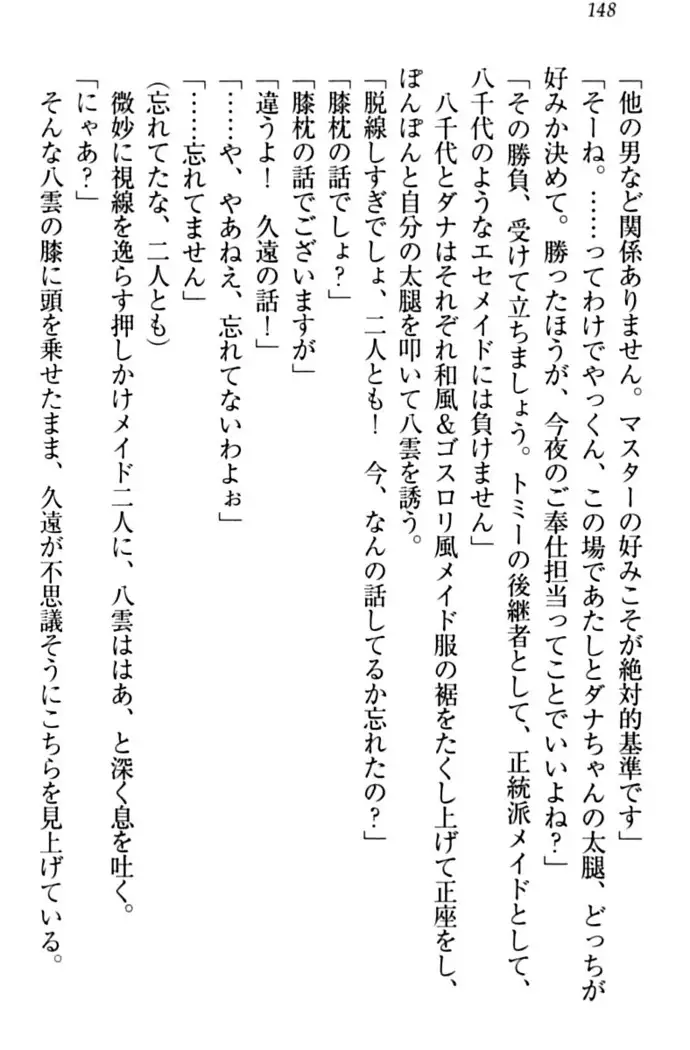 148
「他の男など関係ありません。マスターの好みこそが絶対的基準です」
「そーね。……ってわけでやっくん、この場であたしとダナちゃんの太腿、どっちが
好みか決めて。勝ったほうが、今夜のご奉仕担当ってことでいいよね？」
「その勝負、受けて立ちましょう。トミーの後継者として、正統派メイドとして、
八千代のようなエセメイドには負けません」
八千代とダナはそれぞれ和風＆ゴスロリ風メイド服の裾をたくし上げて正座をし、
ぽんぽんと自分の太腿を叩いて八雲を誘う。
「脱線しすぎでしょ、二人とも！　今、なんの話してるか忘れたの？」
「膝枕の話でしょ？」
「膝枕の話でございますが」
「違うよ！　久遠の話！」
「……や、やあねえ、忘れてないわよぉ」
「……忘れてません」
（忘れてたな、二人とも）
微妙に視線を逸らす押しかけメイド二人に、八雲ははあ、と深く息を吐く。
「にゃあ？」
そんな八雲の膝に頭を乗せたまま、久遠が不思議そうにこちらを見上げている。